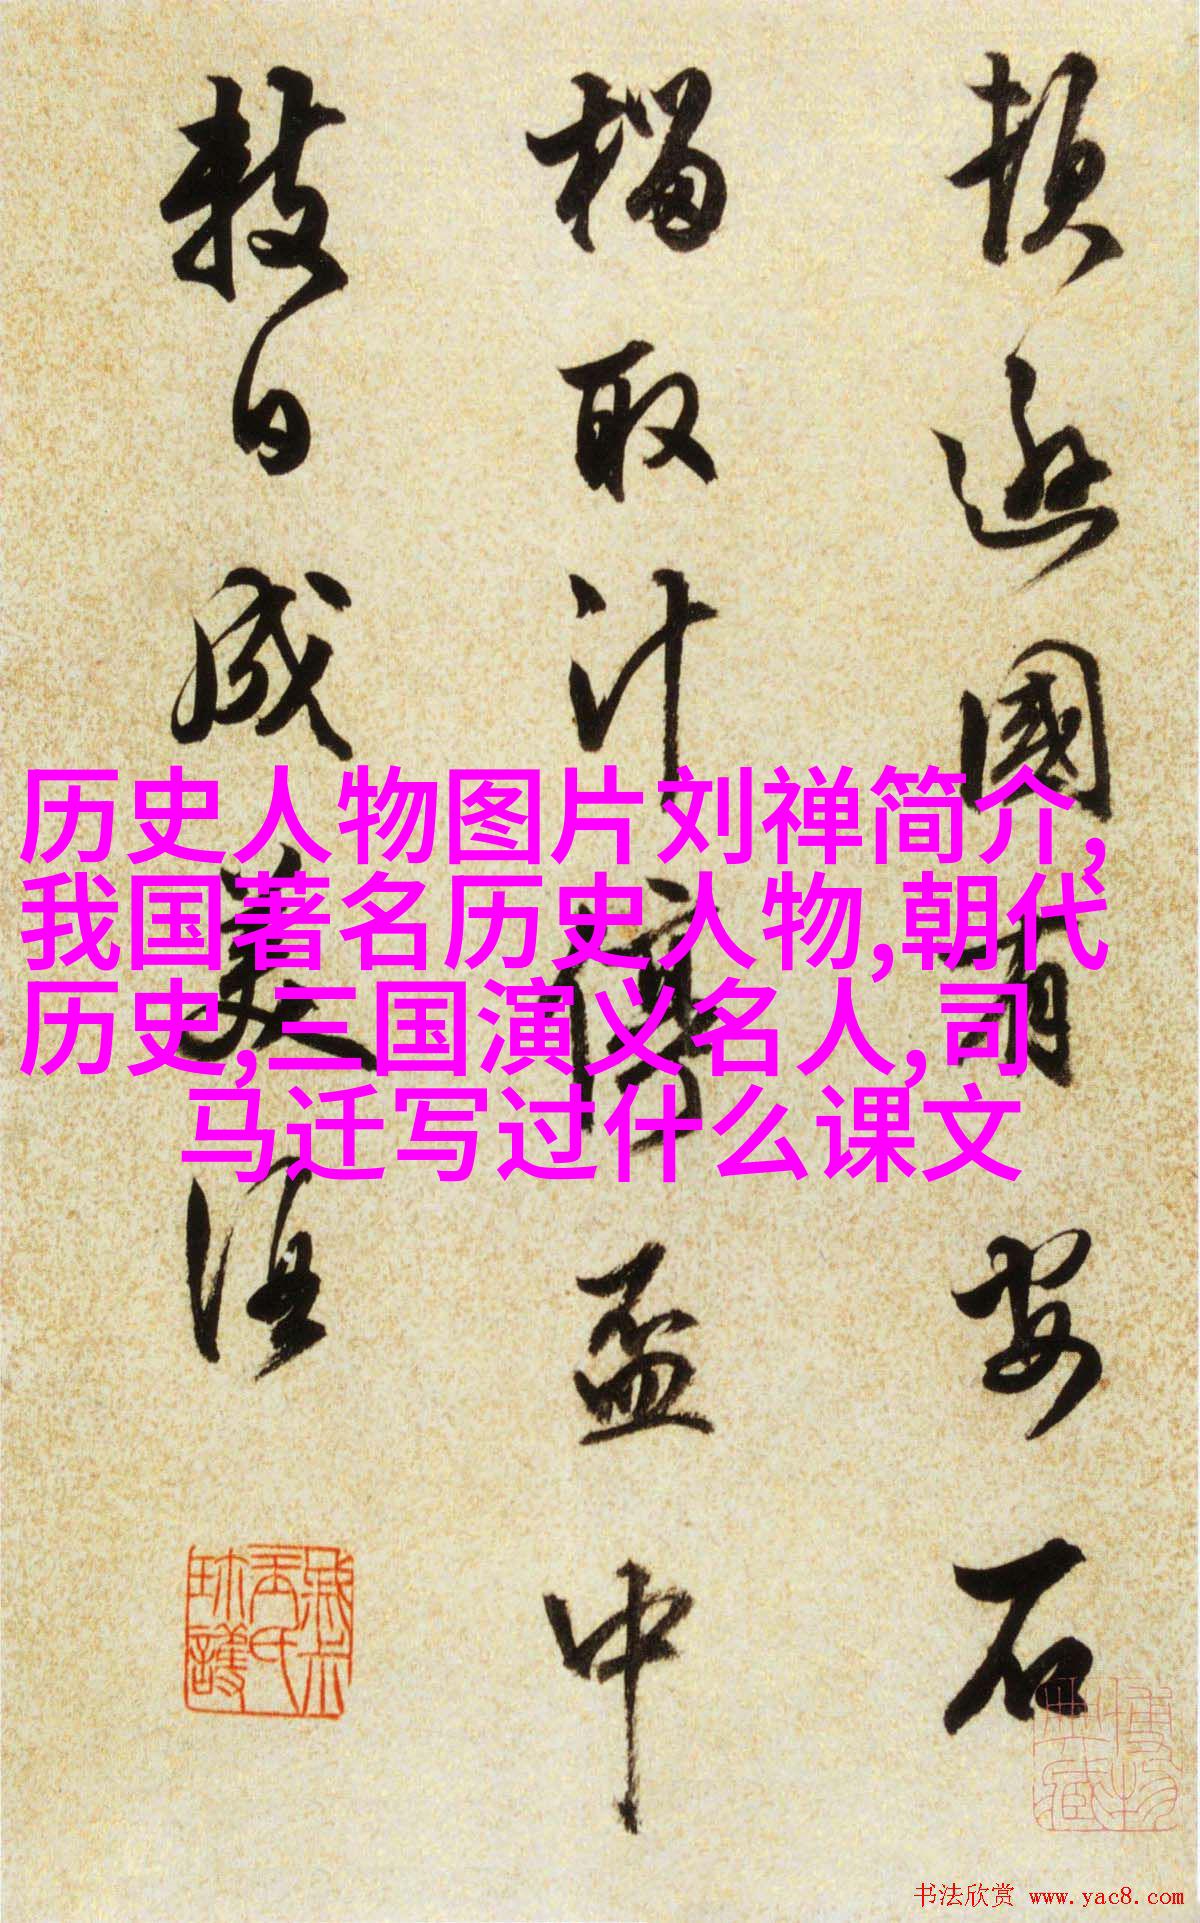 頓遜國有安石
榴取汁停盃中
數日成美酒
历史人物图片刘禅简介,
我国著名历史人物,朝代
历史,三国演义名人,司
马迁写过什么课文
书法欣赏 www.yac8.com